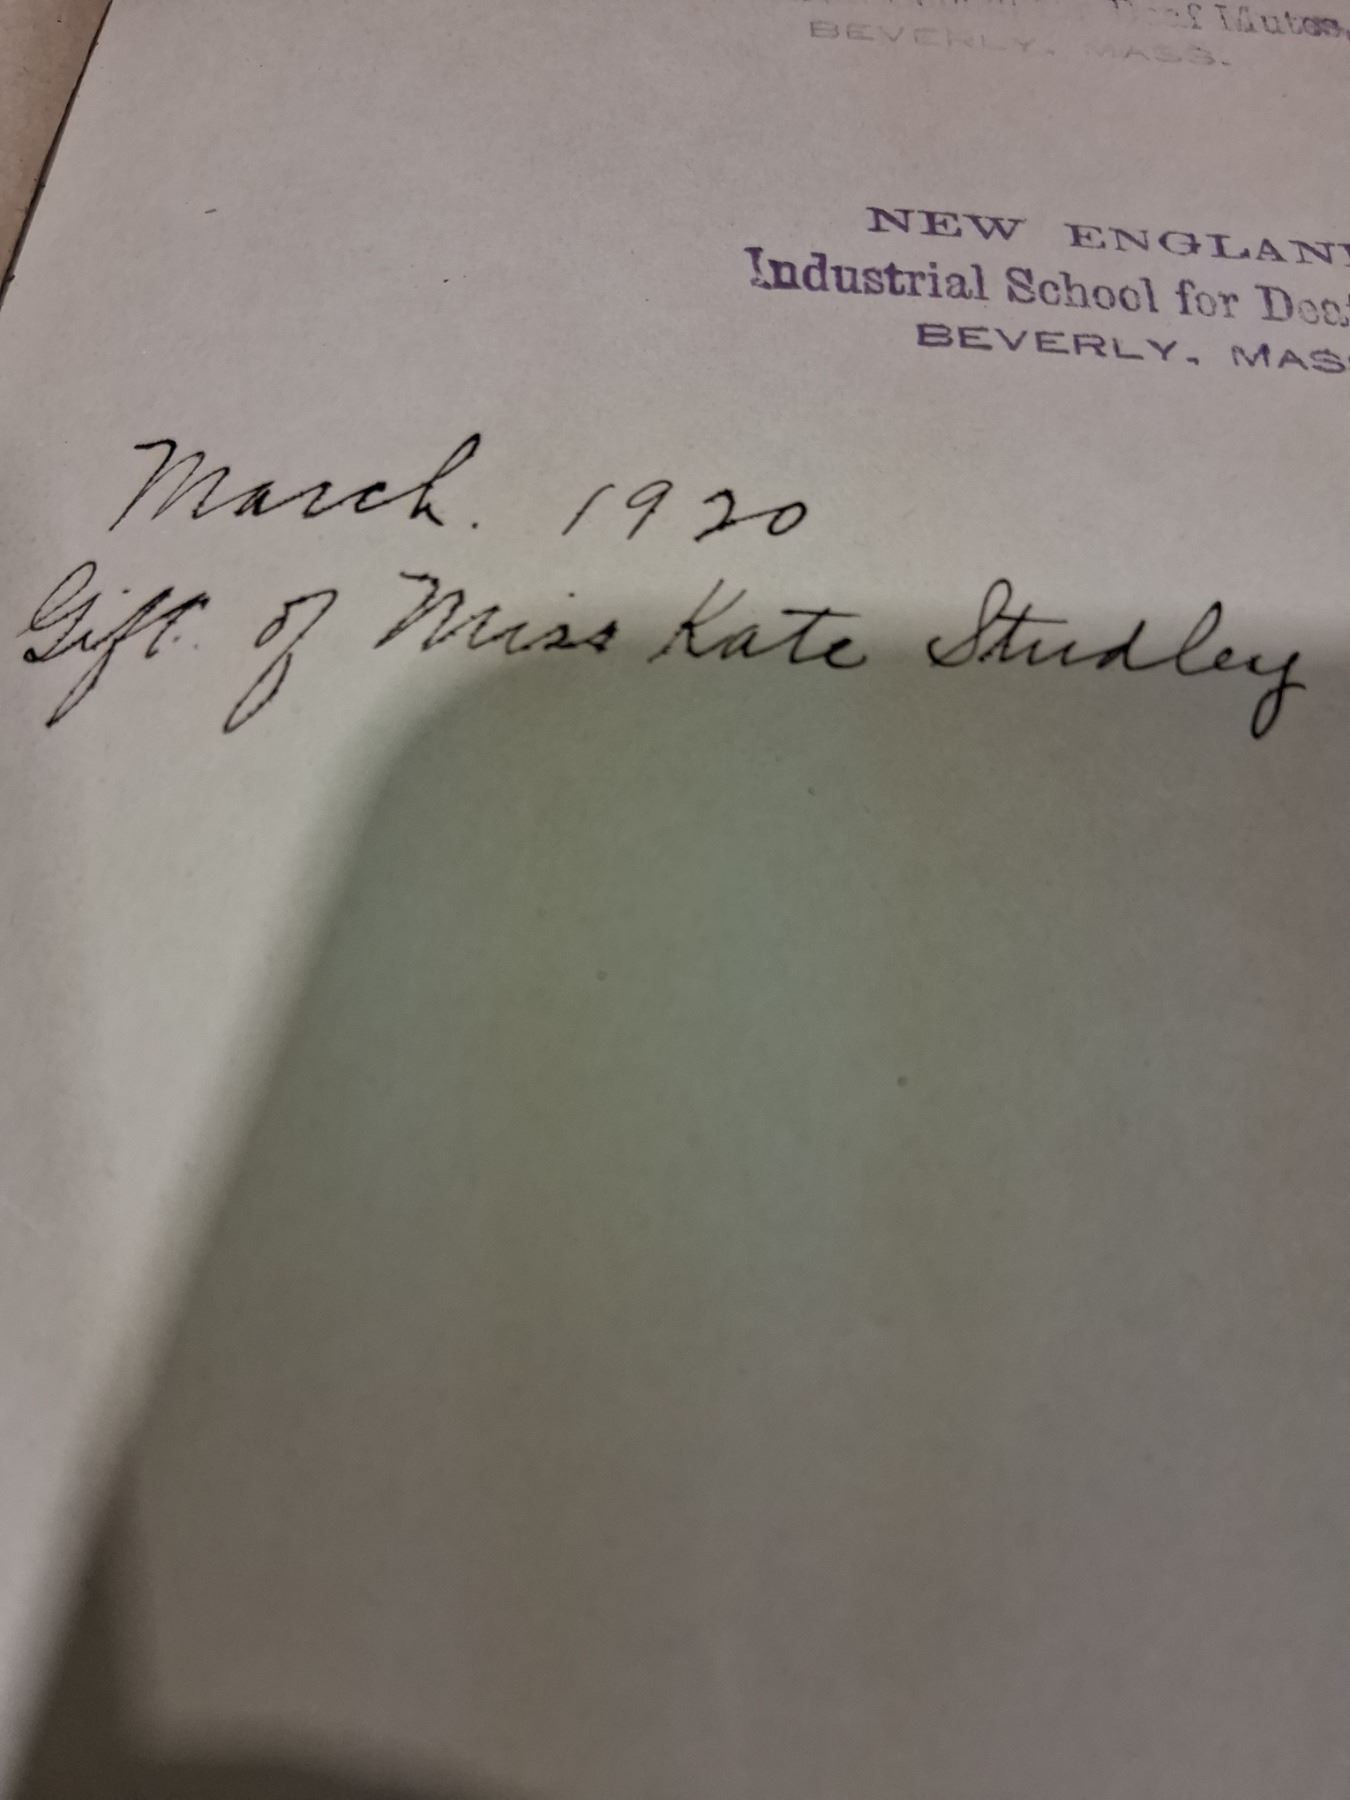 Deaf Mutes,
BEVERLY, MASS.
NEW ENGLAND
Industrial School for Deaf
BEVERLY, MASS
March. 1920
Gift of Miss Kate Studley